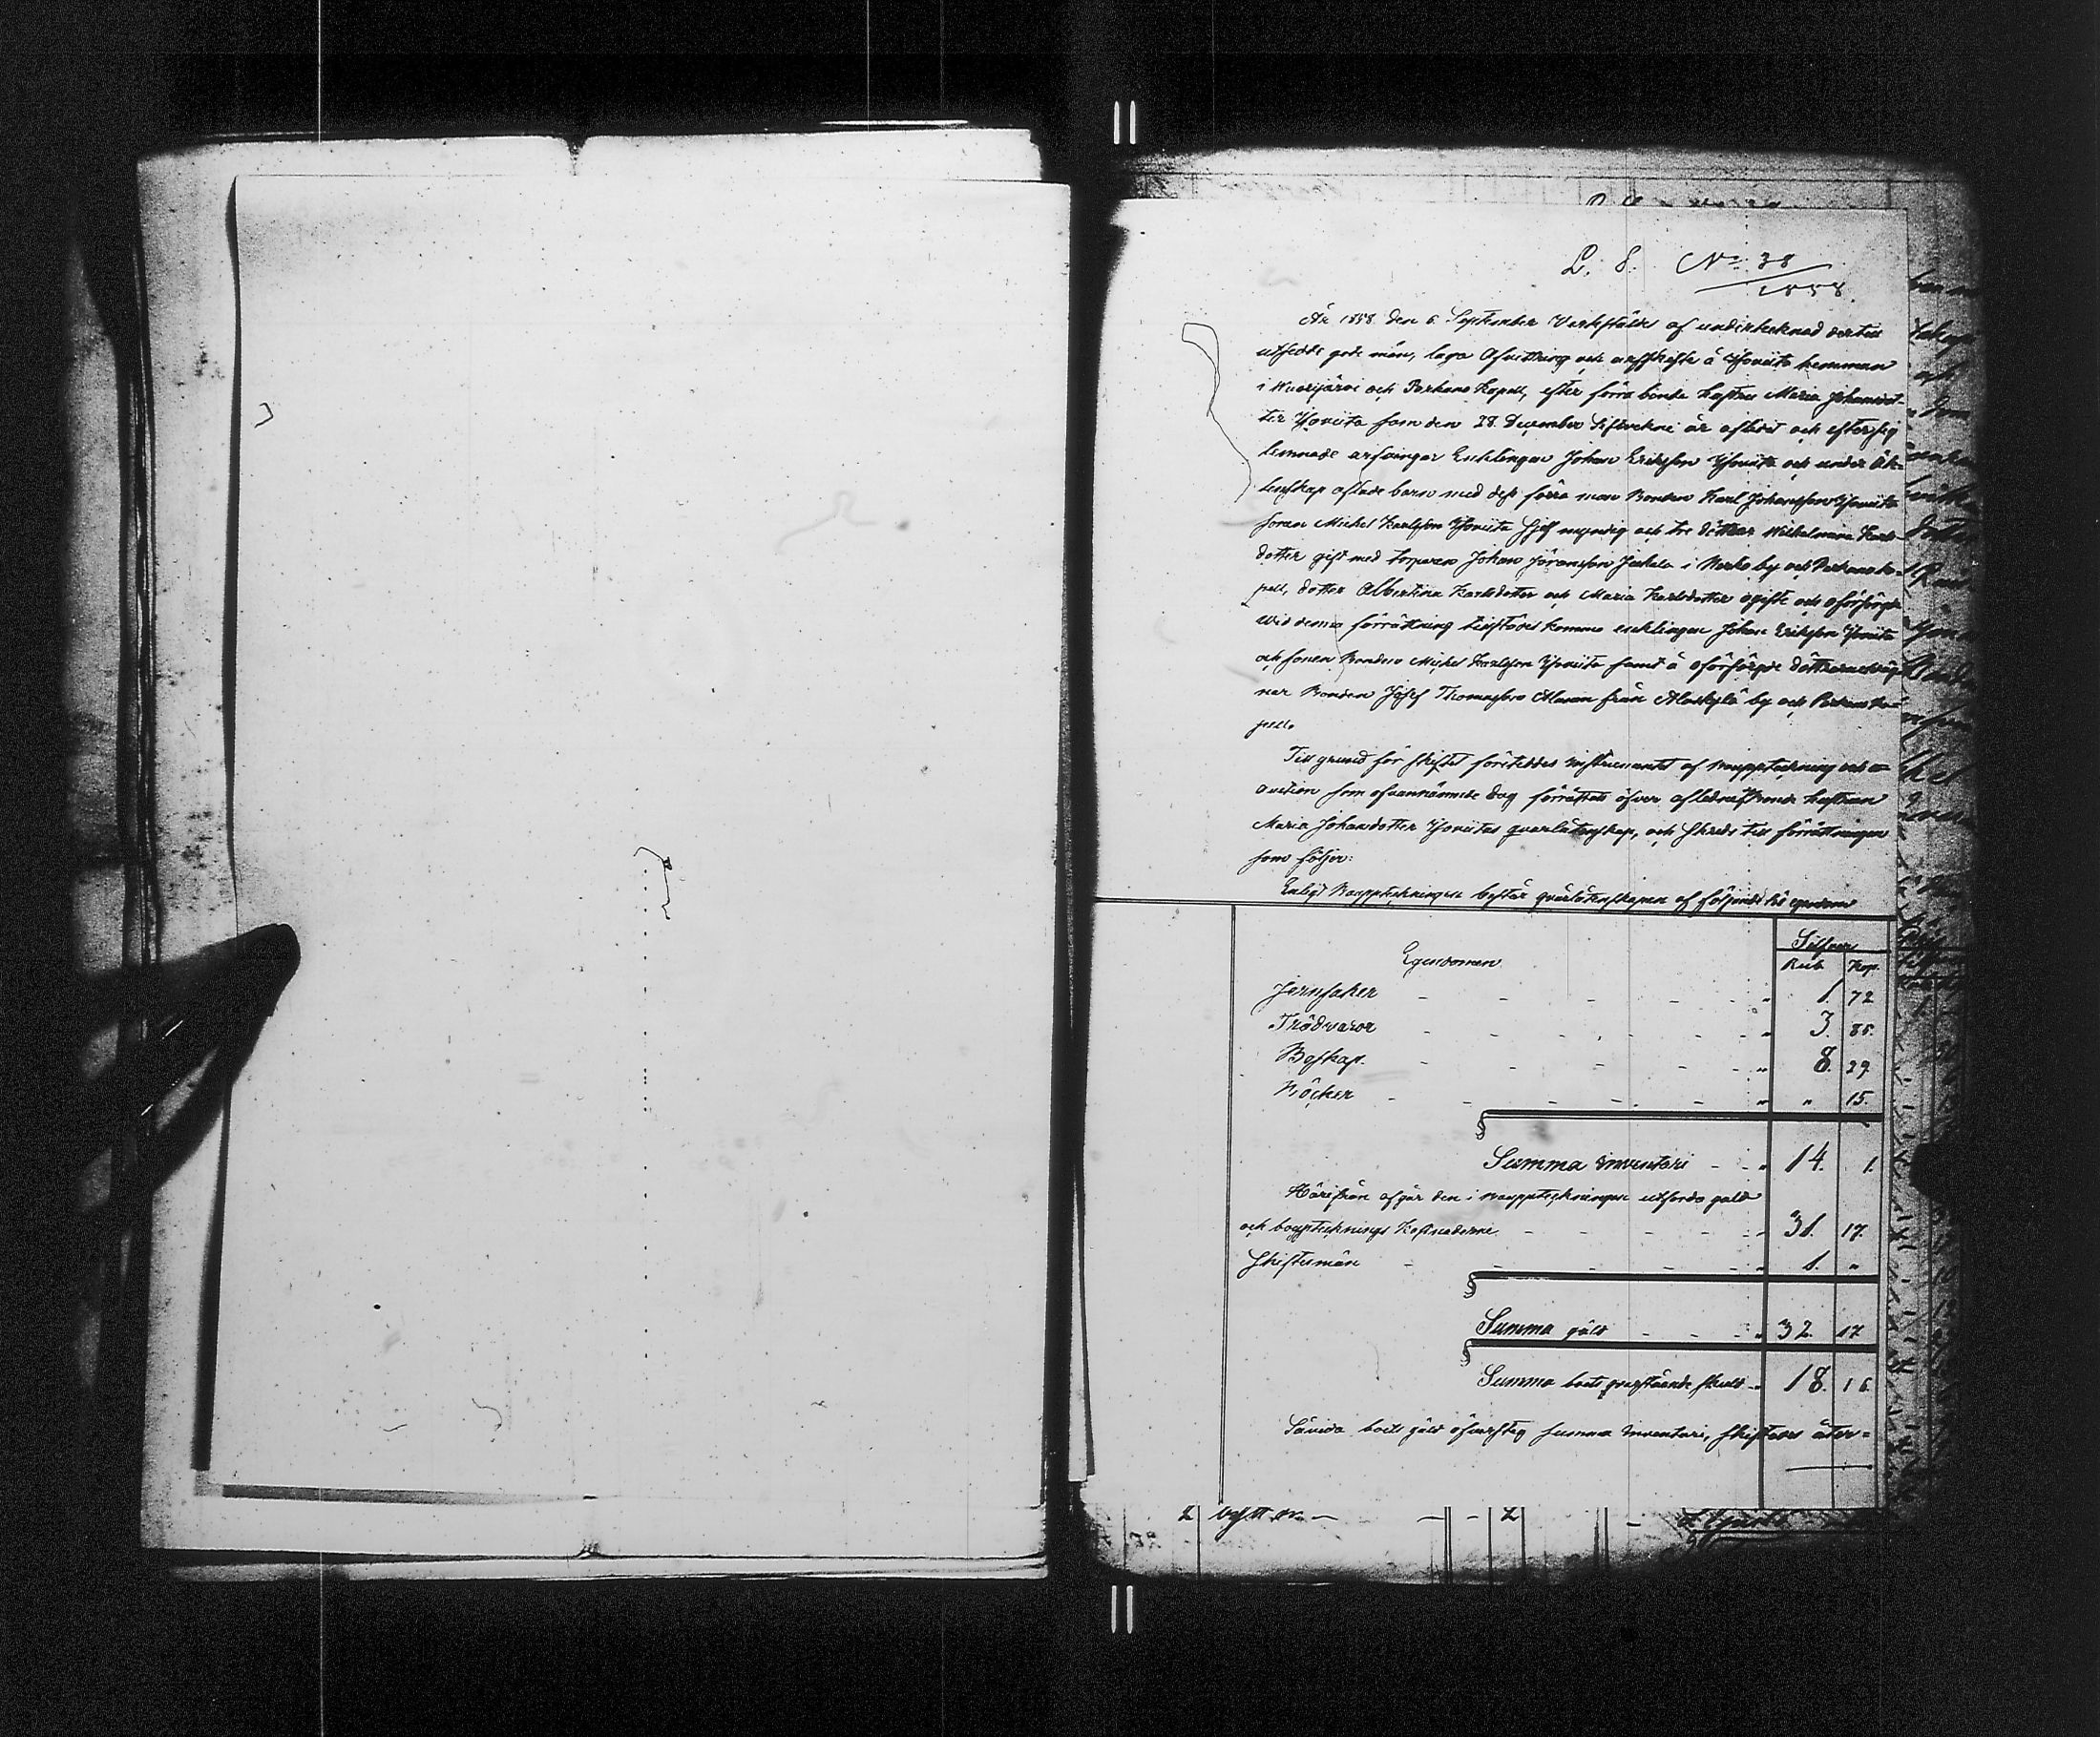 L. 8. No 38
1858.
År 1858 den 6 September Verkstäldes af undertecknad dertill
utsedde gode män, laga Afvittring och arfskifte å Yoviita hemman
i Kuorijärvi och Parkano Kapell, efter förra bonde hustru Maria Johansdot-
ter Yoviita som den 28 December sistvekne år afledit och efter sig
lemnade arfvingar Enklingen Johan Eriksson Yoviita och under äk-
tenskap aflade barn med dess förra man Bonden Karl Johansson Yoviita
sonen Michel Karlsson Yoviita sjelf myndig och tre döttrar Wilhelmina Karls-
dotter gift med torparen Johan Jöransson Jakala i by och Parkano ka-
pell, dotter Albertina Karlsdotter och Maria Karlsdotter ogifte och oförsörgde
Wid denna förrättning tillstädes komma enklingen Johan Eriksson Yoviita
och sonen Bonden Michel Karlsson Yoviita samt å oförsörgde döttrarnes
nar Bonden Josef Thomasson Alanen från Alaskylä by och Parkano Ka-
pell.
Till grund för skiftet företeddes instrumentet af bouppteckning och
auction som ofvannämnde dag förrättats öfver aflednaftrande hustrun
Maria Johansdotter Yoviitas quarlåtenskap, och skreds till förrättningen
som följer:
Enligt Bouppteckningen består quarlåtenskapen af följande lös egendom
Silfver
Egendomen Rub. Kop.
Jernsaker - - - - - " 1. 72
Trädvaror - - - - - " 3. 85.
Boskap. - - - - - " 8. 29.
Böcker - - - - - " " 15.
Summa inventari - - " 14. 1.
Härifrån afgår den i bouppteckningen utförda gäld
och boupptecknings kostnaderne - - - - " 31. 17.
Skiftesmän - - - - " 1. "
Summa gäld - - - " 32. 17
Summa boets quarstående skuld - " 18. 16.
Såvida boets gäld öfverstég summa Inventari, skiftades åter=